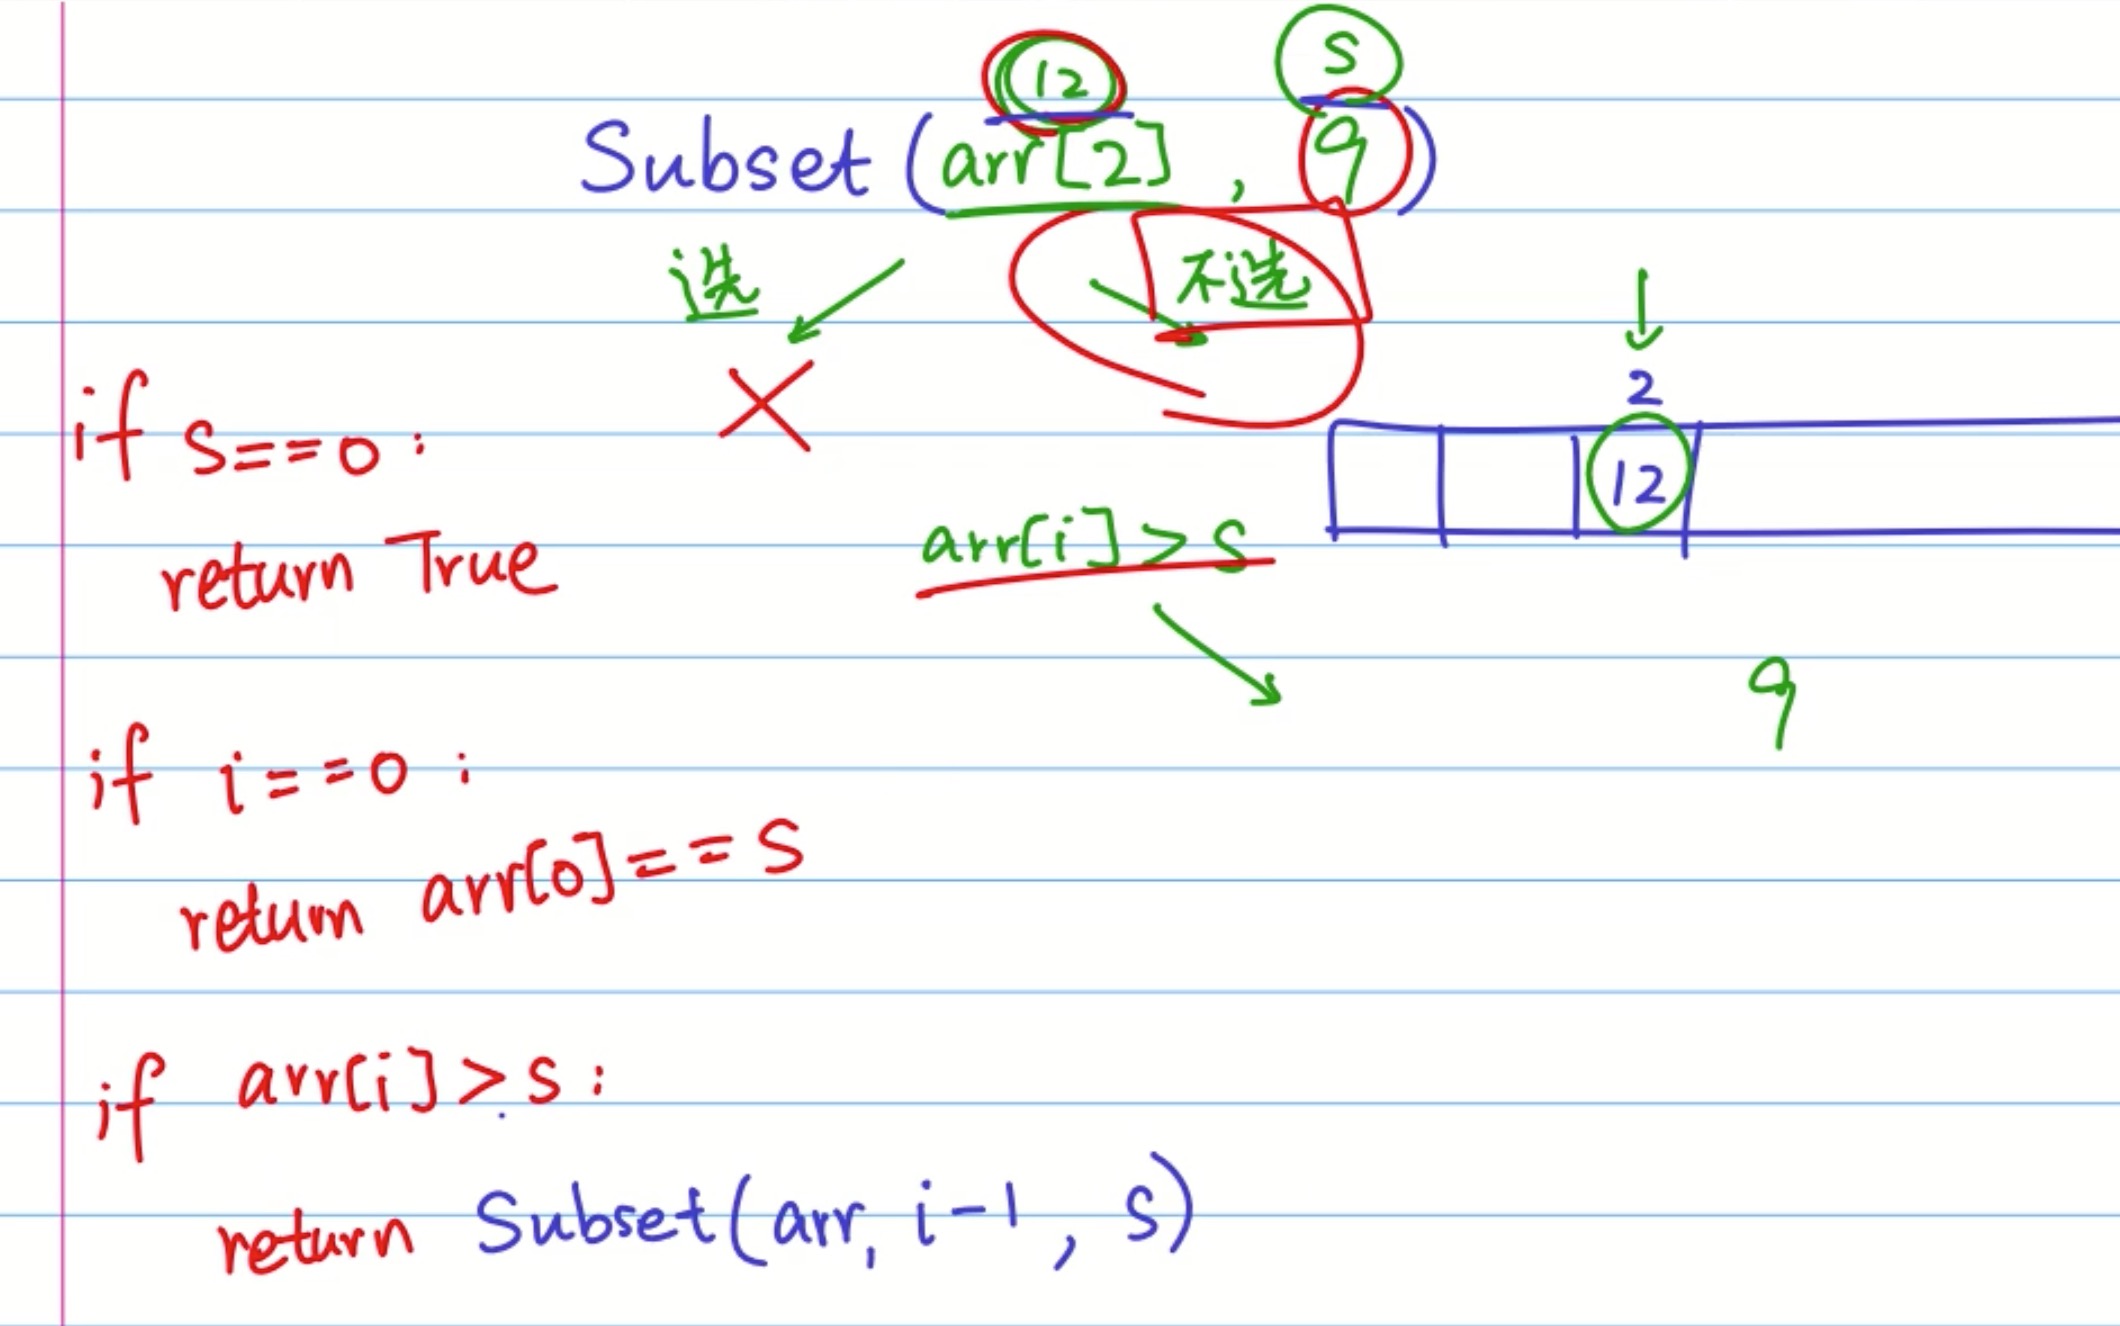 12 S
Subset (arr[2] , 9)
选 不选
2
12
if S==0:
return True
arr[i] > S
9
if i==0:
return arr[0]==S
if arr[i]>S:
return Subset(arr, i-1, S)